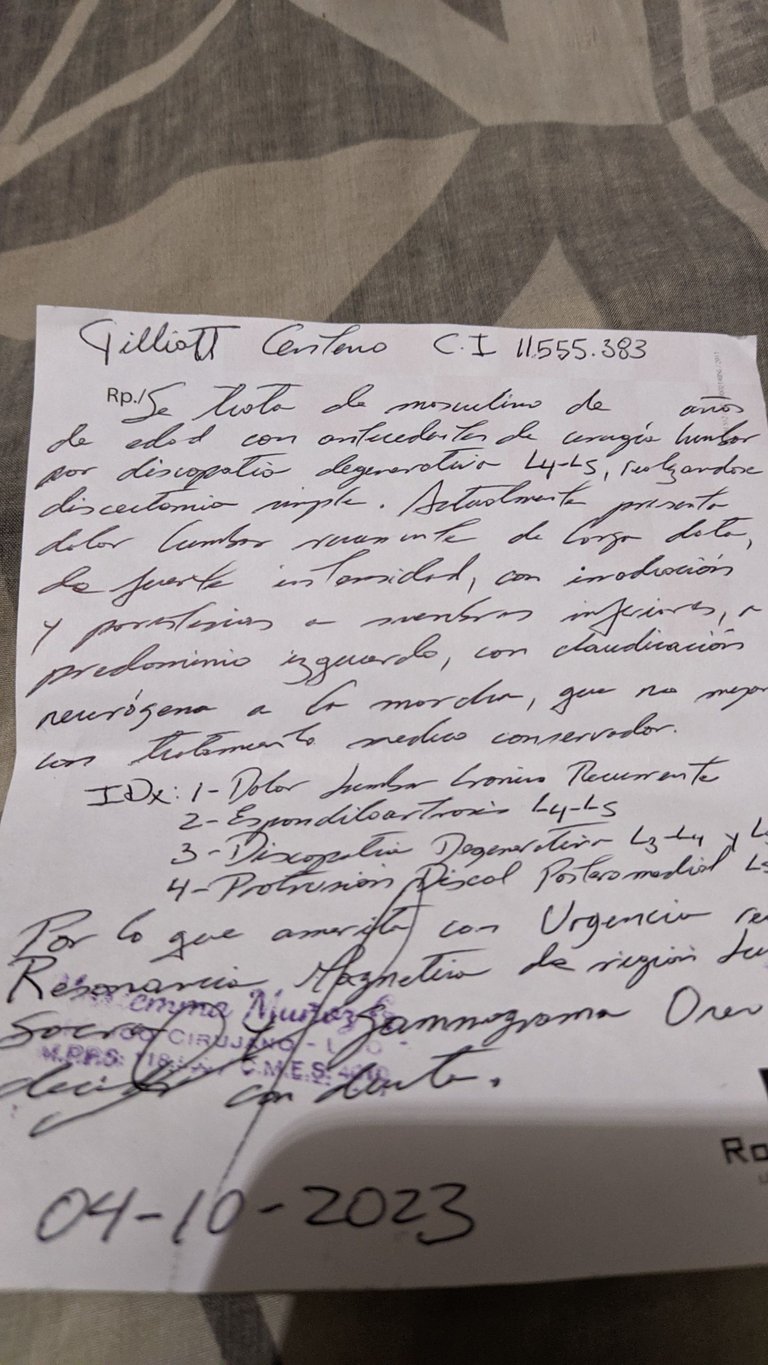 Gilliott Centeno C.I 11.555.383
Rp./ Se trata de masculino de años
de edad con antecedentes de cirugía lumbar
por discopatia degenerativa L4-L5, realizandose
discectomia simple. Actualmente presenta
dolor lumbar recurrente de larga data,
de fuerte intensidad, con irradiación
y parestesias a miembros inferiores, a
predominio izquierdo, con claudicación
neurógena a la marcha, que no mejor
con tratamiento medico conservador.
IDx: 1- Dolor Lumbar Cronico Recurrente
2- Espondiloartrosis L4-L5
3- Discopatia Degenerativa L3-L4 y L5
4- Protrusión Discal Posteromedial L5
Por lo que amerita con Urgencia re
Resonancia Magnetica de region Lu
Socra y Gammagrama Oseo
decidir conducta.
Muñoz
CIRUJANO
M.P.P.S. C.M.E.S.
04-10-2023
Ro